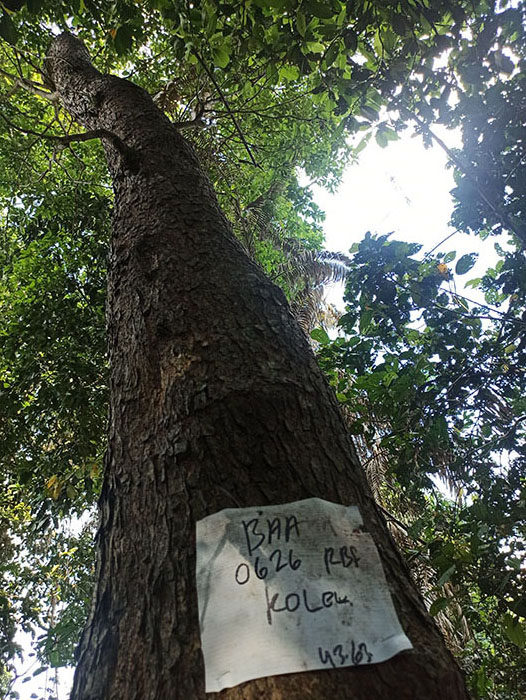 BAA
0626 RBF
KOLew.
4363